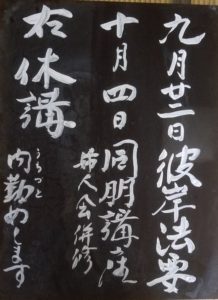 九月廿二日彼岸法要
十月四日同朋講座
婦人会併修
右休講
内勤めします
うちづと